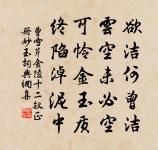 欲洁何曾洁
雲空未必空
可怜金玉质
终陷淖泥中
曹雪芹金陵十二钗正
册妙玉詞典網集